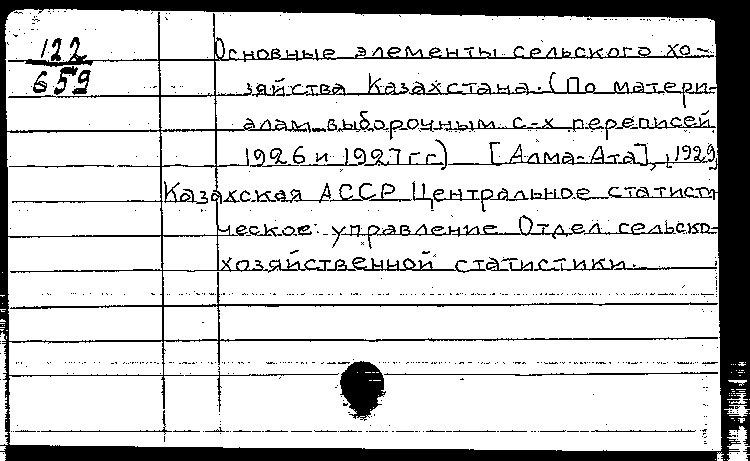 122
659
Основные элементы сельского хо-
зяйства Казахстана. (По матери-
алам выборочным с-х переписей
1926 и 1927 гг) [Алма-Ата], [1929]
Казахская АССР Центральное статисти
ческое управление Отдел сельско-
хозяйственной статистики.